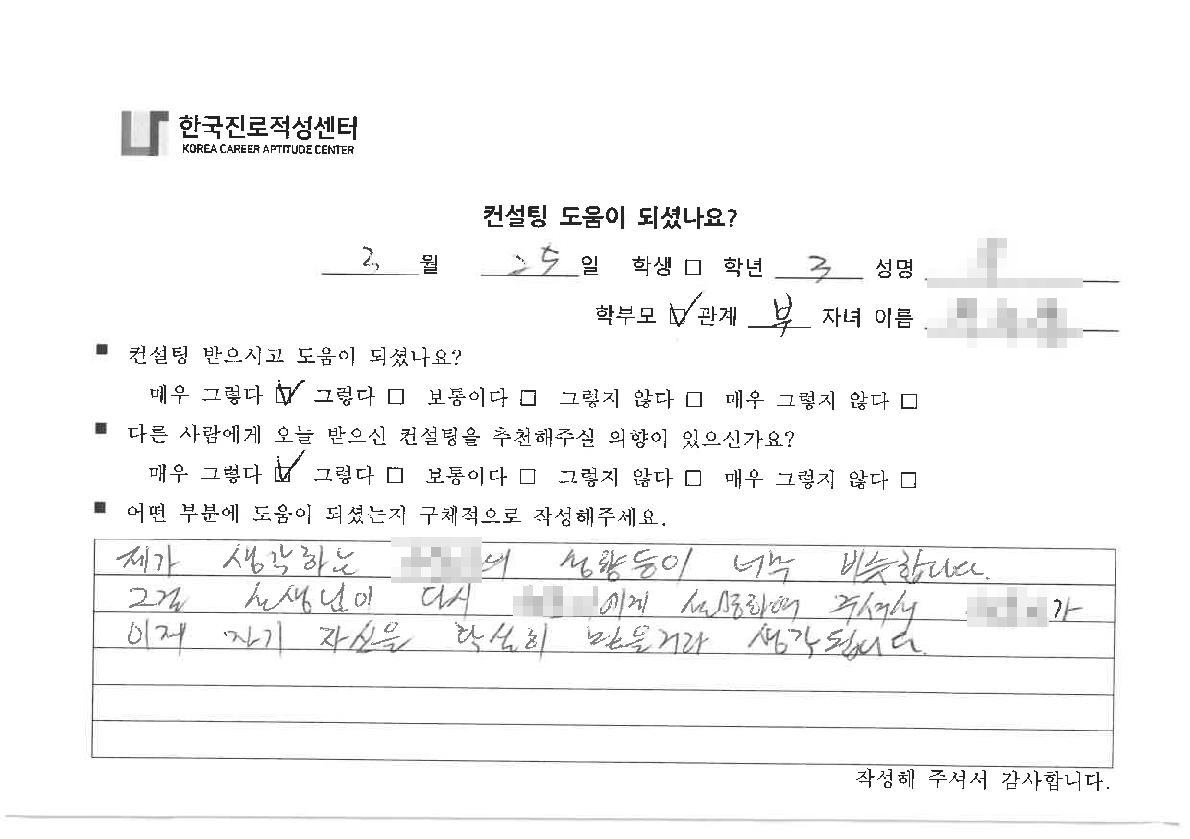 한국진로적성센터
KOREA CAREER APTITUDE CENTER
컨설팅 도움이 되셨나요?
2월 25일 학생 □ 학년 3 성명
학부모 ☑ 관계 부 자녀 이름
■ 컨설팅 받으시고 도움이 되셨나요?
매우 그렇다 ☑ 그렇다 □ 보통이다 □ 그렇지 않다 □ 매우 그렇지 않다 □
■ 다른 사람에게 오늘 받으신 컨설팅을 추천해주실 의향이 있으신가요?
매우 그렇다 ☑ 그렇다 □ 보통이다 □ 그렇지 않다 □ 매우 그렇지 않다 □
■ 어떤 부분에 도움이 되셨는지 구체적으로 작성해주세요.
제가 생각하는 의 성향등이 너무 비슷합니다.
그걸 선생님이 다시 에게 설명하여 주셔서 가
이제 자기 자신을 확실히 믿을거라 생각됩니다.
작성해 주셔서 감사합니다.